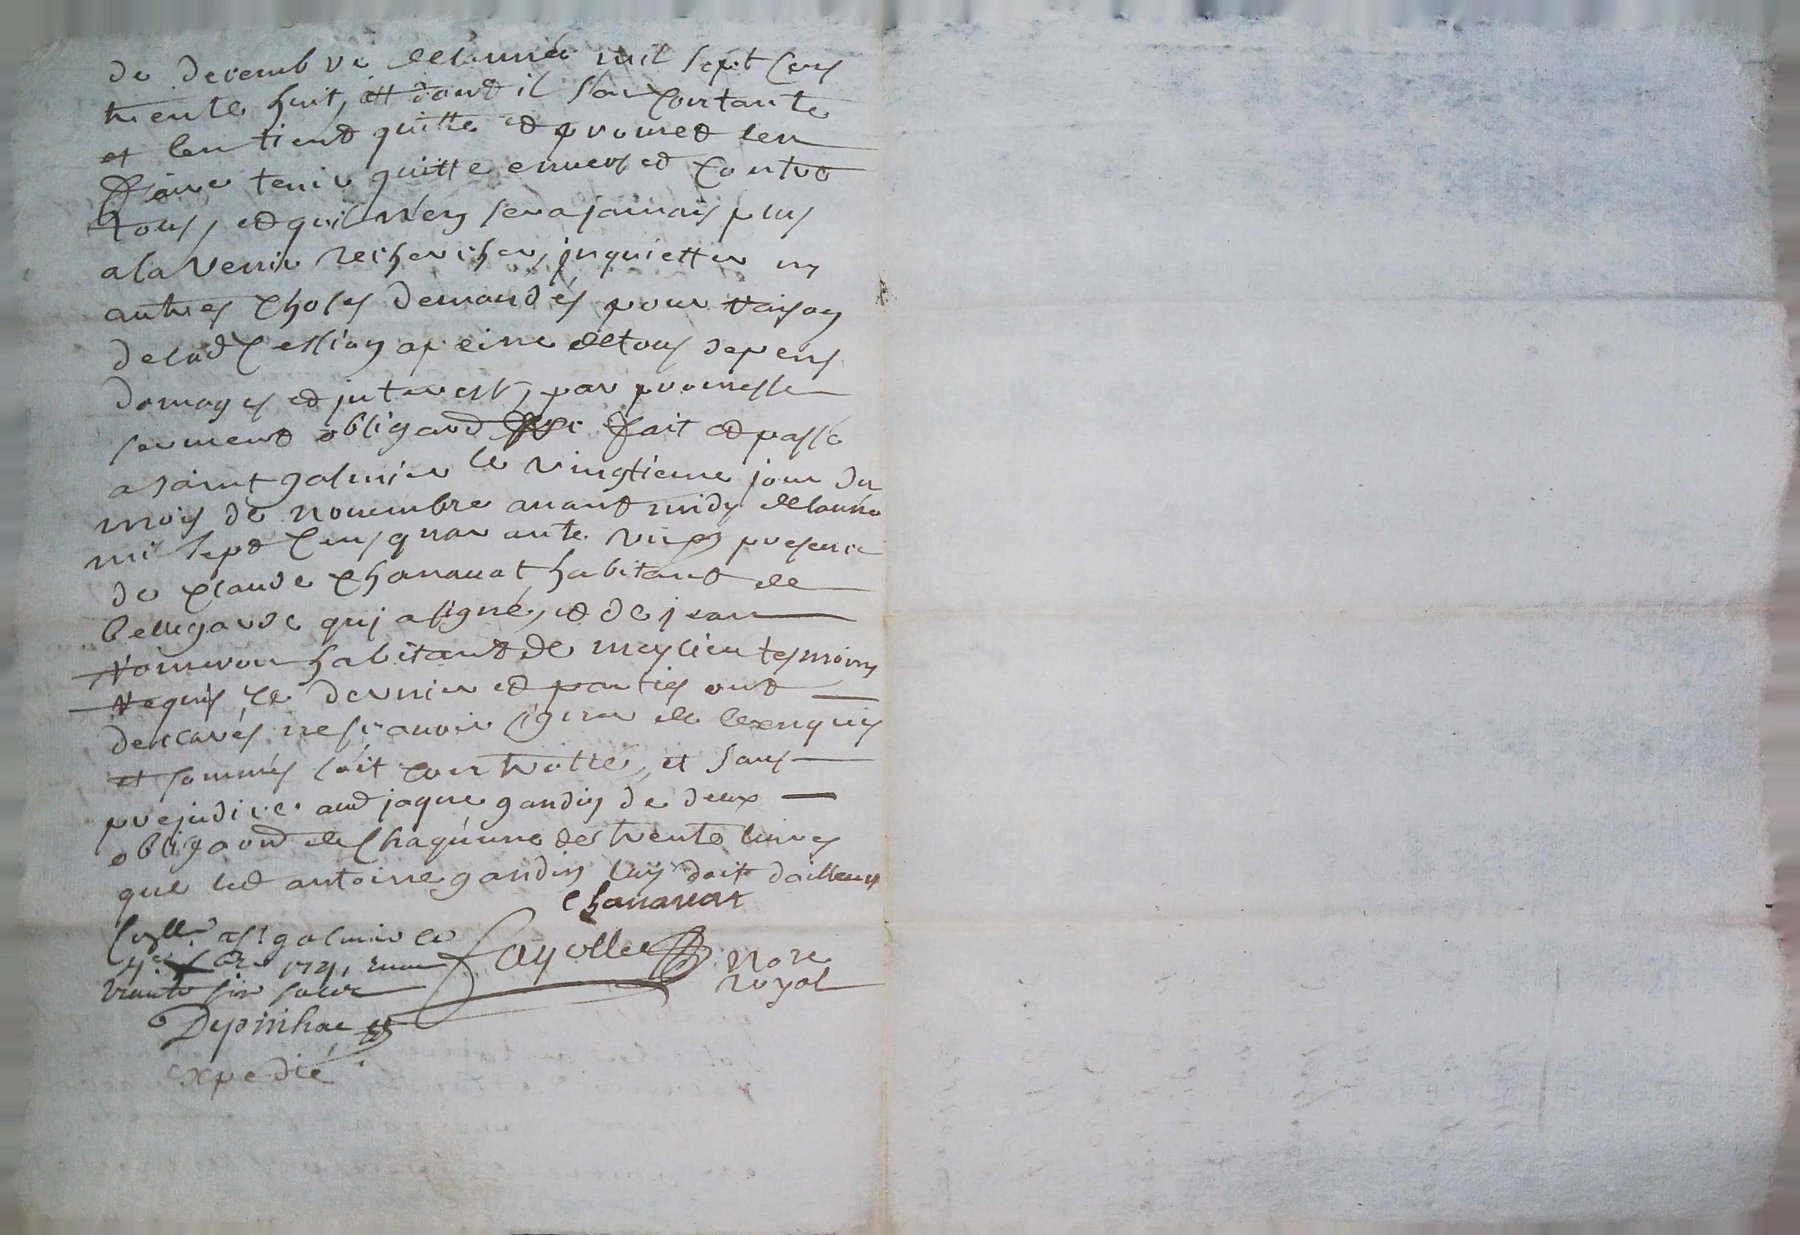 de decembre de l'année mil sept cens
trente huit, et dont il s'en contante
et l'en tient quitte et promet l'en
faire tenir quitte envers et contre
tous, et qu'il n'en sera jamais plus
a l'avenir rechercher, inquietter ny
autres choses demandés pour raison
de lad cession a peine de tous depens
domages et interests, par promesse
serment obligaõn &c fait et passé
a saint galmier le vingtieme jour du
mois de novembre avant midy de l'anné
mil sept cens quarante presence
de claude chanavat habitant de
bellegarde qui a signé, et de jean
habitant de meylieu tesmoins
requis ce dernier et parties ont
declarés ne sçavoir signer de ce enquis
et sommés soit controllé, et sans
prejudice aud jaque gandin de deux
obligaõn de chaquune de trente livres
que led antoine gandin luy doit d'ailleurs
chanavat
a st galmier le
Fayolle Nore
royal
sin solve
Despinhac
expedié